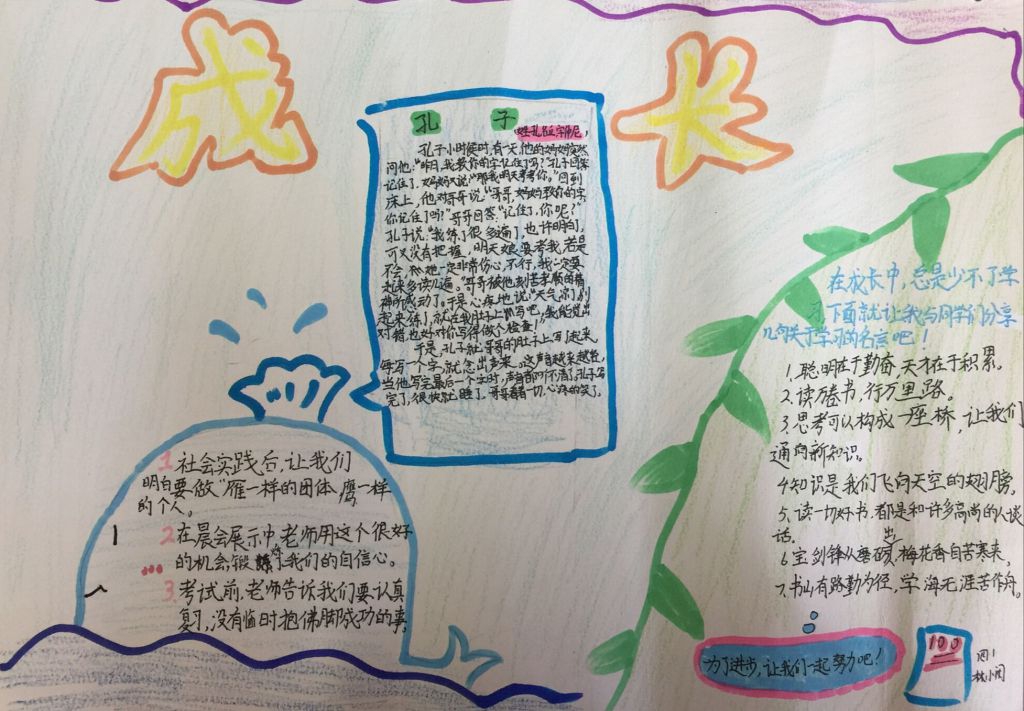 成长
孔子
姓孔名丘,字仲尼,
孔子小时候时,有一天,他的妈妈突然
问他:“昨日,我教你的字记住了吗?”孔子回答
记住了,妈妈又说:“那我明天考考你。”回到
床上,他对哥哥说:“哥哥,妈妈教你的字,
你记住了吗?”哥哥回答:“记住了,你呢?”
孔子说:“我练了很多遍了,也许明白了,
可又没有把握,明天娘要考我,若是
不会,她一定非常伤心,不行,我一定要
起来多读几遍。”哥哥被他刻苦求学的精
神所感动了。于是心疼地说:“天气凉了,别
起来练了,就在我肚子上写吧,我能觉出
对错,也好对你写得做个检查!”
于是,孔子就在哥哥的肚子上写起来,
每写一个字,就念出声来。这声音越来越低,
当他写完最后一个字时,声音都听不清了,孔子写
完了,很快就睡了。哥哥看着一切,心疼的笑了。
1.社会实践后,让我们
明白要做“雁一样的团体,鹰一样
的个人。
2.在晨会展示中,老师用这个很好
的机会,锻炼了我们的自信心。
3.考试前,老师告诉我们要认真
复习,没有临时抱佛脚成功的事。
在成长中,总是少不了学
习,下面就让我与同学们分享
几句关于学习的名言吧!
1.聪明在于勤奋,天才在于积累。
2.读万卷书,行万里路。
3.思考可以构成一座桥,让我们
通向新知识。
4.知识是我们飞向天空的翅膀,
5.读一切好书,都是和许多高尚的人谈
话。
6.宝剑锋从磨砺出,梅花香自苦寒来,
7.书山有路勤为径,学海无涯苦作舟。
为了进步,让我们一起努力吧!
100